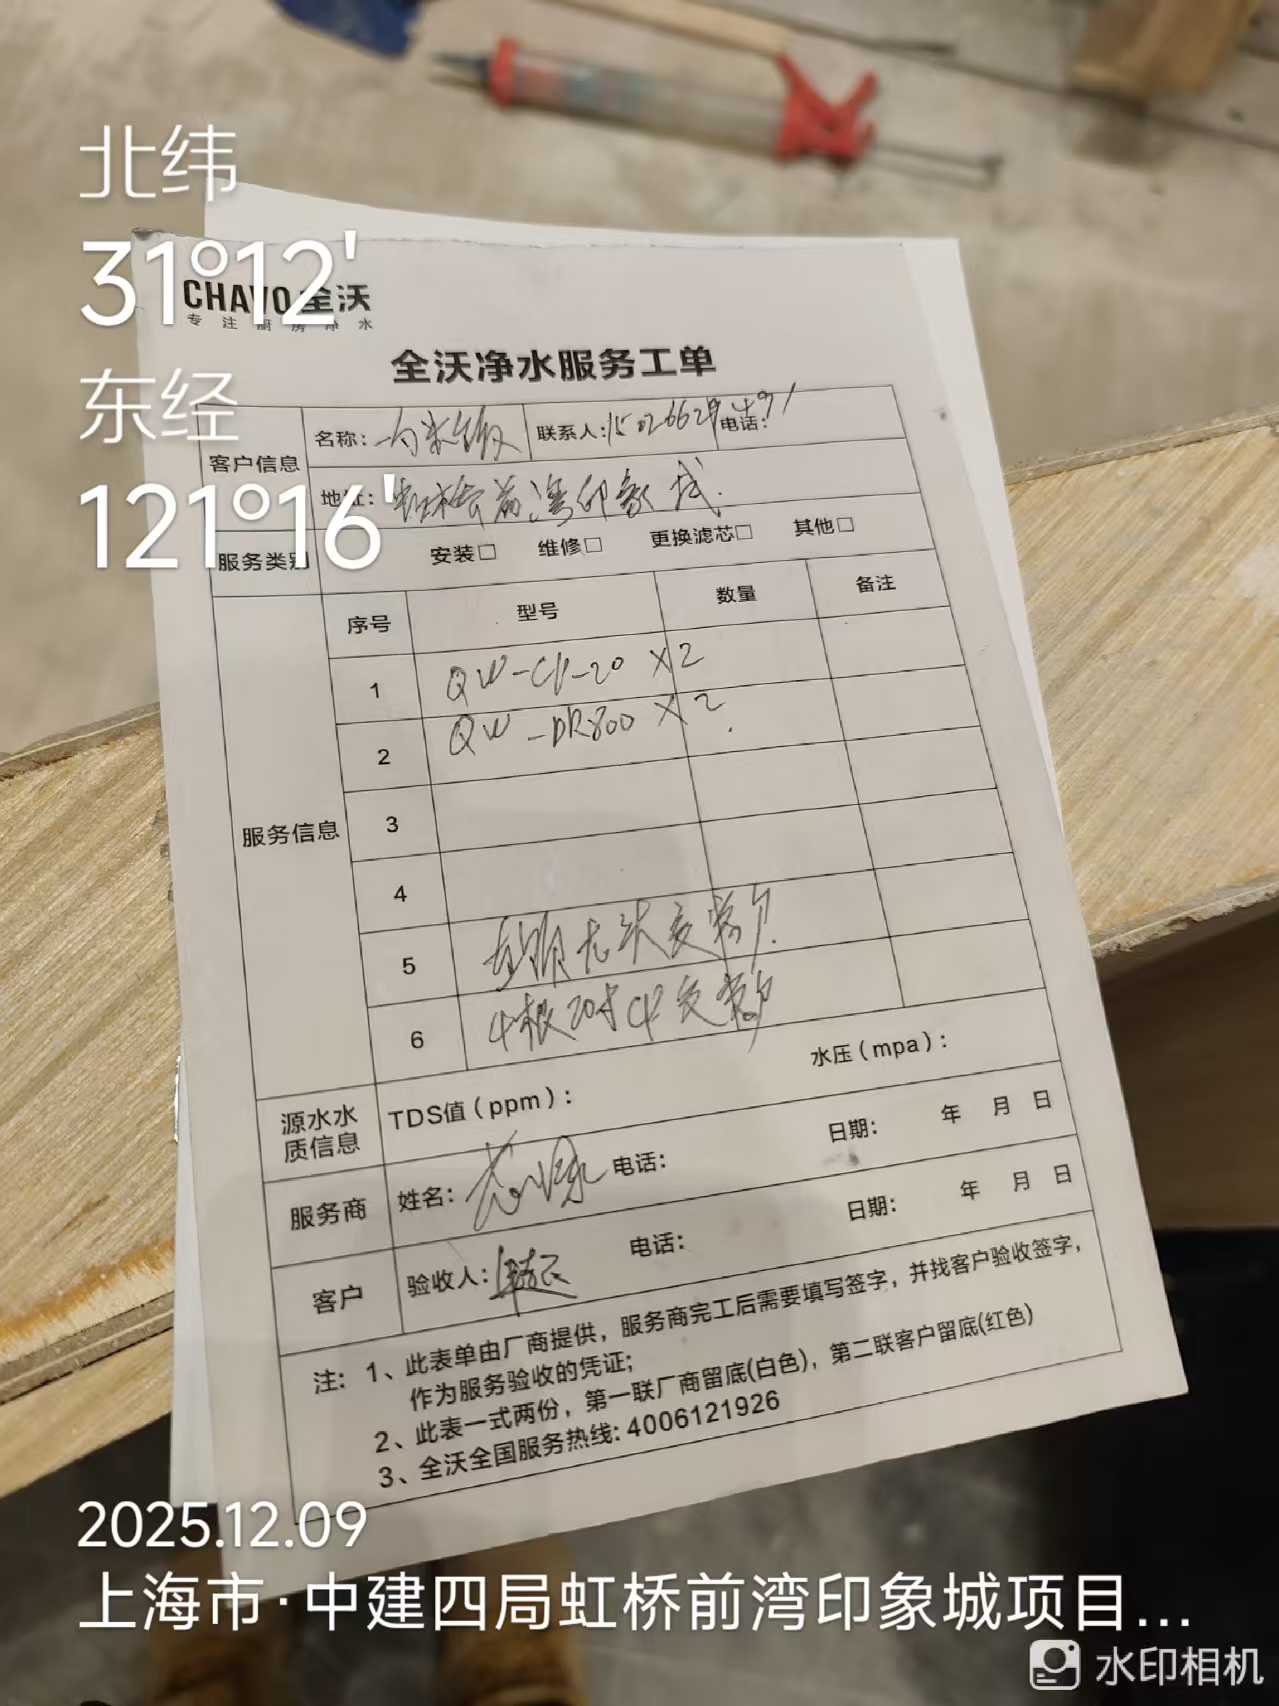 北纬
31°12'
东经
121°16'
CHAVO 全沃
专注厨房净水
全沃净水服务工单
客户信息
名称:
联系人:
电话:
地址: 虹桥前湾印象城.
服务类别
安装□ 维修□ 更换滤芯□ 其他□
服务信息
序号 型号 数量 备注
1 QW-CP-20 X2
2 QW-DR800 X2
3
4
5
6 4根20寸CP
源水水质信息
TDS值(ppm): 水压(mpa):
服务商 姓名: 电话: 日期: 年 月 日
客户 验收人: 电话: 日期: 年 月 日
注: 1、此表单由厂商提供，服务商完工后需要填写签字，并找客户验收签字，
作为服务验收的凭证;
2、此表一式两份，第一联厂商留底(白色)，第二联客户留底(红色)
3、全沃全国服务热线: 4006121926
2025.12.09
上海市·中建四局虹桥前湾印象城项目...
水印相机